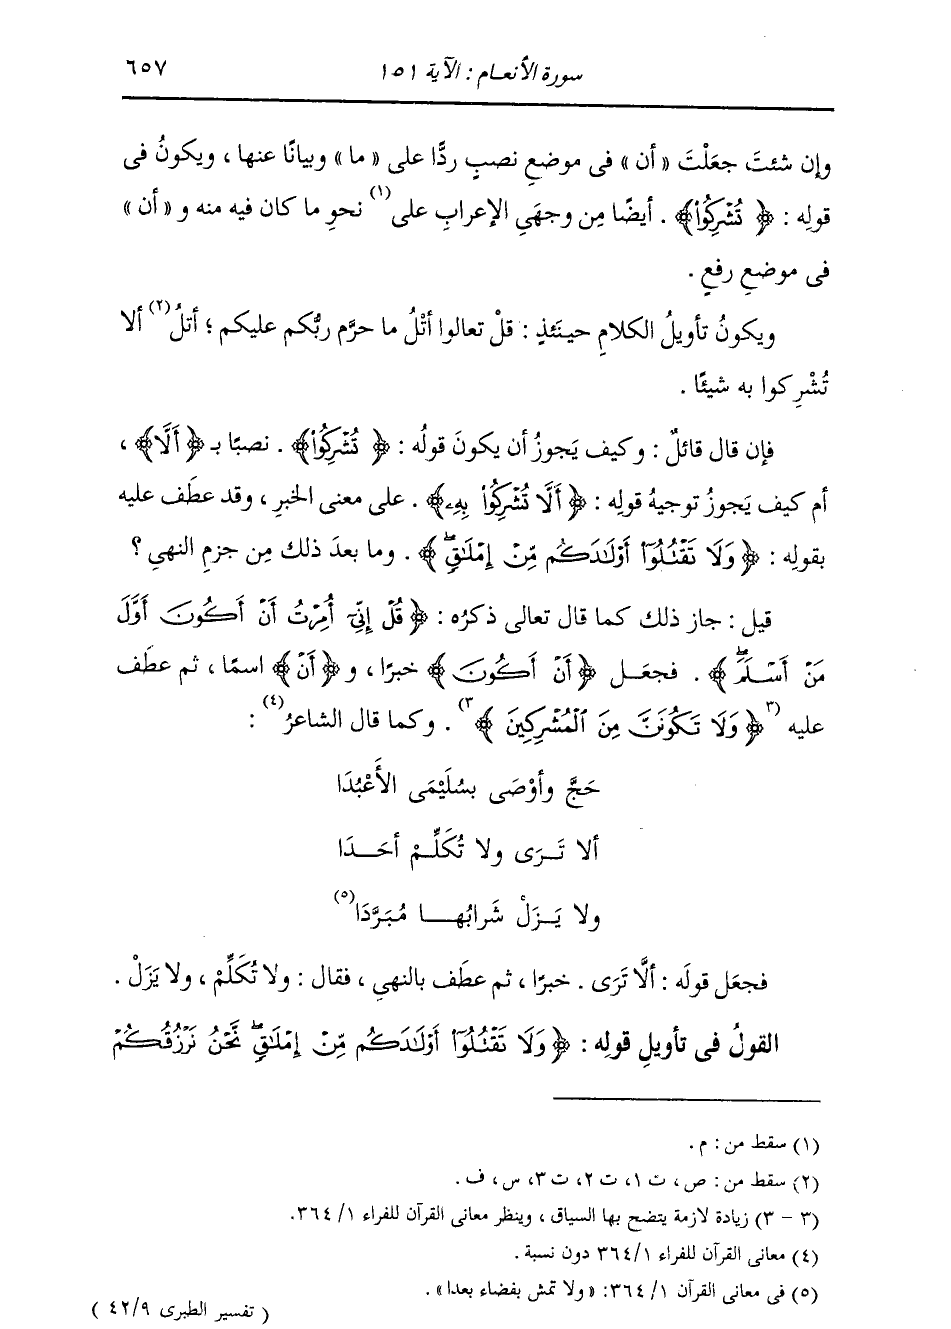 سورة الأنعام : الآية ١٥١ ٦٥٧
وإن شئتَ جعَلْتَ « أن » فى موضعِ نصبٍ ردًّا على « ما » وبيانًا عنها ، ويكونُ فى
قولِه : ﴿ تُشْرِكُوا۟ ﴾ . أيضًا مِن وجهَيِ الإعرابِ على(١) نحوِ ما كان فيه منه و « أن »
فى موضعِ رفعٍ .
ويكونُ تأويلُ الكلامِ حينَئذٍ : قلْ تعالوا أتْلُ ما حرَّم ربُّكم عليكم ؛ أتلُ(٢) ألا
تُشْرِكوا به شيئًا .
فإن قال قائلٌ : وكيف يَجوزُ أن يكونَ قولُه : ﴿ تُشْرِكُوا۟ ﴾ . نصبًا بـ ﴿ أَلَّا ﴾ ،
أم كيف يَجوزُ توجيهُ قولِه : ﴿ أَلَّا تُشْرِكُوا۟ بِهِۦ ﴾ . على معنى الخبرِ ، وقد عطَف عليه
بقولِه : ﴿ وَلَا تَقْتُلُوٓا۟ أَوْلَٰدَكُم مِّنْ إِمْلَٰقٍۖ ﴾ . وما بعدَ ذلك مِن جزمِ النهىِ ؟
قيل : جاز ذلك كما قال تعالى ذكرُه : ﴿ قُلْ إِنِّىٓ أُمِرْتُ أَنْ أَكُونَ أَوَّلَ
مَنْ أَسْلَمَۖ ﴾ . فجعَل ﴿ أَنْ أَكُونَ ﴾ خبرًا ، و ﴿ أَنْ ﴾ اسمًا ، ثم عطَف
عليه (٣ ﴿ وَلَا تَكُونَنَّ مِنَ ٱلْمُشْرِكِينَ ﴾ ٣) . وكما قال الشاعرُ(٤) :
حَجَّ وأوْصَى بسُلَيْمَى الأَعْبُدَا
ألا تَـرَى ولا تُكَلِّـمْ أحَـدَا
ولا يَـزَلْ شَرابُهـا مُبَرَّدَا(٥)
فجعَل قولَه : ألَّا تَرَى . خبرًا ، ثم عطَف بالنهىِ ، فقال : ولا تُكَلِّمْ ، ولا يَزَلْ .
القولُ فى تأويلِ قولِه : ﴿ وَلَا تَقْتُلُوٓا۟ أَوْلَٰدَكُم مِّنْ إِمْلَٰقٍۖ نَّحْنُ نَرْزُقُكُمْ
(١) سقط من : م .
(٢) سقط من : ص ، ت ١، ت ٢، ت ٣، س ، ف .
(٣ - ٣) زيادة لازمة يتضح بها السياق ، وينظر معانى القرآن للفراء ١/ ٣٦٤.
(٤) معانى القرآن للفراء ١/ ٣٦٤ دون نسبة .
(٥) فى معانى القرآن ١/ ٣٦٤: « ولا تمش بفضاء بعدا » .
( تفسير الطبرى ٤٢/٩ )